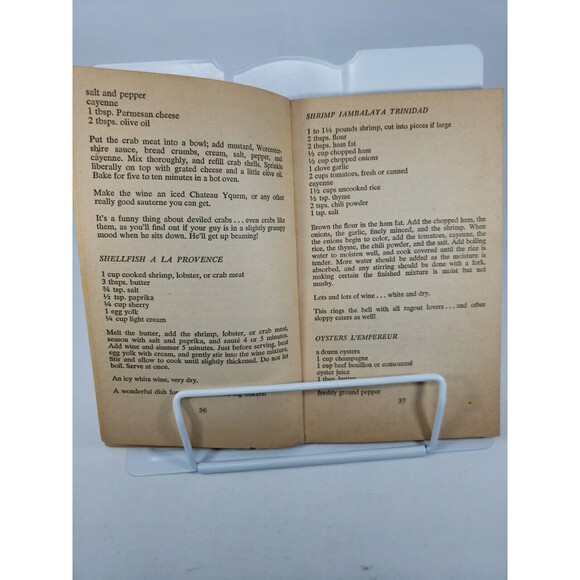 salt and pepper
cayenne
1 tbsp. Parmesan cheese
2 tbsps. olive oil
Put the crab meat into a bowl; add mustard, Worcester-
shire sauce, bread crumbs, cream, salt, pepper, and
cayenne. Mix thoroughly, and refill crab shells. Sprinkle
liberally on top with grated cheese and a little olive oil.
Bake for five to ten minutes in a hot oven.
Make the wine an iced Chateau Yquem, or any other
really good sauterne you can get.
It's a funny thing about deviled crabs . . . even crabs like
them, as you'll find out if your guy is in a slightly grumpy
mood when he sits down. He'll get up beaming!
SHELLFISH A LA PROVENCE
1 cup cooked shrimp, lobster, or crab meat
3 tbsps. butter
¾ tsp. salt
½ tsp. paprika
¼ cup sherry
1 egg yolk
¼ cup light cream
Melt the butter, add the shrimp, lobster, or crab meat,
season with salt and paprika, and sauté 4 or 5 minutes.
Add wine and simmer 5 minutes. Just before serving, beat
egg yolk with cream, and gently stir into the wine mixture.
Stir and allow to cook until slightly thickened. Do not let
boil. Serve at once.
An icy white wine, very dry.
A wonderful dish for
36
SHRIMP JAMBALAYA TRINIDAD
1 to 1¼ pounds shrimp, cut into pieces if large
2 tbsps. flour
2 tbsps. ham fat
½ cup chopped ham
½ cup chopped onions
1 clove garlic
2 cups tomatoes, fresh or canned
cayenne
1½ cups uncooked rice
½ tsp. thyme
2 tsps. chili powder
1 tsp. salt
Brown the flour in the ham fat. Add the chopped ham, the
onions, the garlic, finely minced, and the shrimp. When
the onions begin to color, add the tomatoes, cayenne, the
rice, the thyme, the chili powder, and the salt. Add boiling
water to moisten well, and cook covered until the rice is
tender. More water should be added as the moisture is
absorbed, and any stirring should be done with a fork,
making certain the finished mixture is moist but not
mushy.
Lots and lots of wine . . . white and dry.
This rings the bell with all ragout lovers . . . and other
sloppy eaters as well!
OYSTERS L'EMPEREUR
a dozen oysters
1 cup champagne
1 cup beef bouillon or consommé
oyster juice
1 tbsp. butter
freshly ground pepper
37